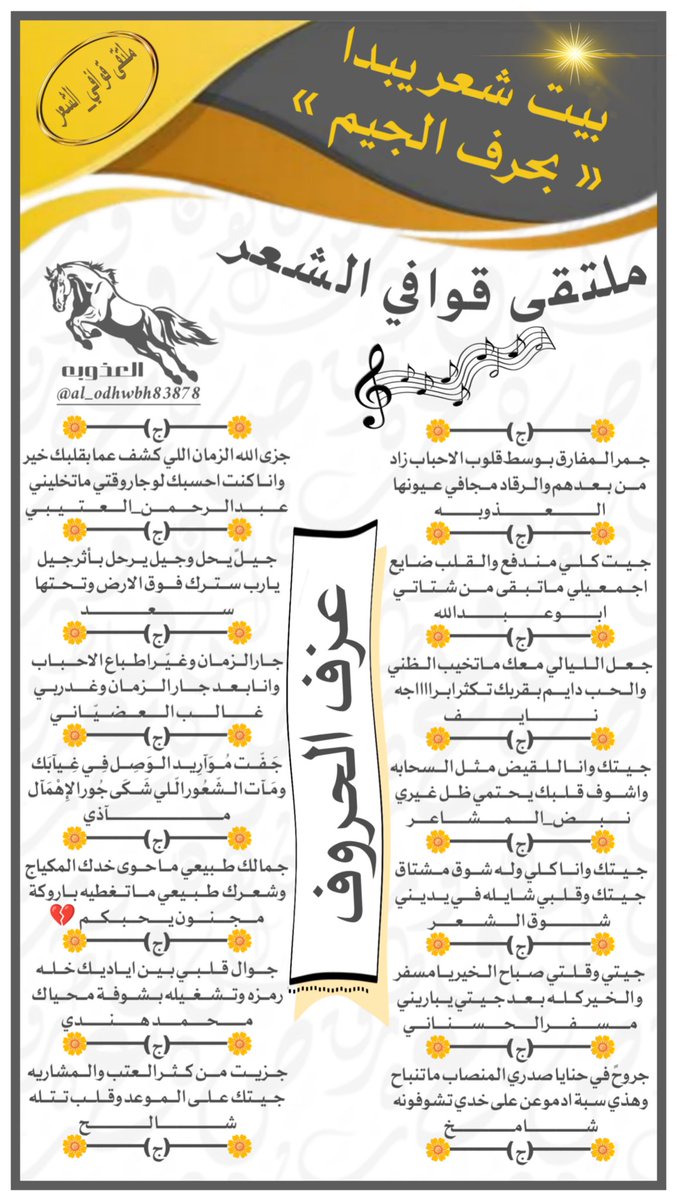 بيت شعر يبدا
« بحرف الجيم »
ملتقى قوافي_الشعر
ملتقى قوافي الشعر
العذوبه
@al_odhwbh83878
عزف الحروف
(ج)
جمر المفارق بوسط قلوب الاحباب زاد
من بعدهم والرقاد مجافي عيونها
العذوبه
(ج)
جيت كلي مندفع والقلب ضايع
اجمعيلي ماتبقى من شتاتي
ابوعبدالله
(ج)
جعل الليالي معك ماتخيب الظني
والحب دايم بقربك تكثر ابراااجه
نايف
(ج)
جيتك وانا للقيض مثل السحابه
واشوف قلبك يحتمي ظل غيري
نبض_المشاعر
(ج)
جيتك وانا كلي وله شوق مشتاق
جيتك وقلبي شايله في يديني
شوق الشعر
(ج)
جيتي وقلتي صباح الخير يا مسفر
والخير كله بعد جيتي يباريني
مسفر الحسناني
(ج)
جروحً في حنايا صدري المنصاب ماتنباح
وهذي سبة ادموعن على خدي تشوفونه
شامخ
(ج)
(ج)
جزى الله الزمان اللي كشف عما بقلبك خير
وانا كنت احسبك لو جار وقتي ماتخليني
عبدالرحمن_العتيبي
(ج)
جيلً يحل وجيل يرحل بأثر جيل
يارب سترك فوق الارض وتحتها
سعد
(ج)
جار الزمان وغيّر اطباع الاحباب
وانا بعد جار الزمان وغدر بي
غالب العضيّاني
(ج)
جَفَت مُوَآرِيد الوَصِل فِي غِيَآبَك
ومَآت الشَعُور الَلي شَكَى جُور الإهْمَآل
مآذي
(ج)
جمالك طبيعي ماحوى خدك المكياج
وشعرك طبيعي ماتغطيه باروكة
مجنون يحبكم 💔
(ج)
جوال قلبي بين اياديك خله
رمزه وتشغيله بشوفة محياك
محمد هندي
(ج)
جزيت من كثر العتب والمشاريه
جيتك على الموعد وقلب تتله
شالح
(ج)